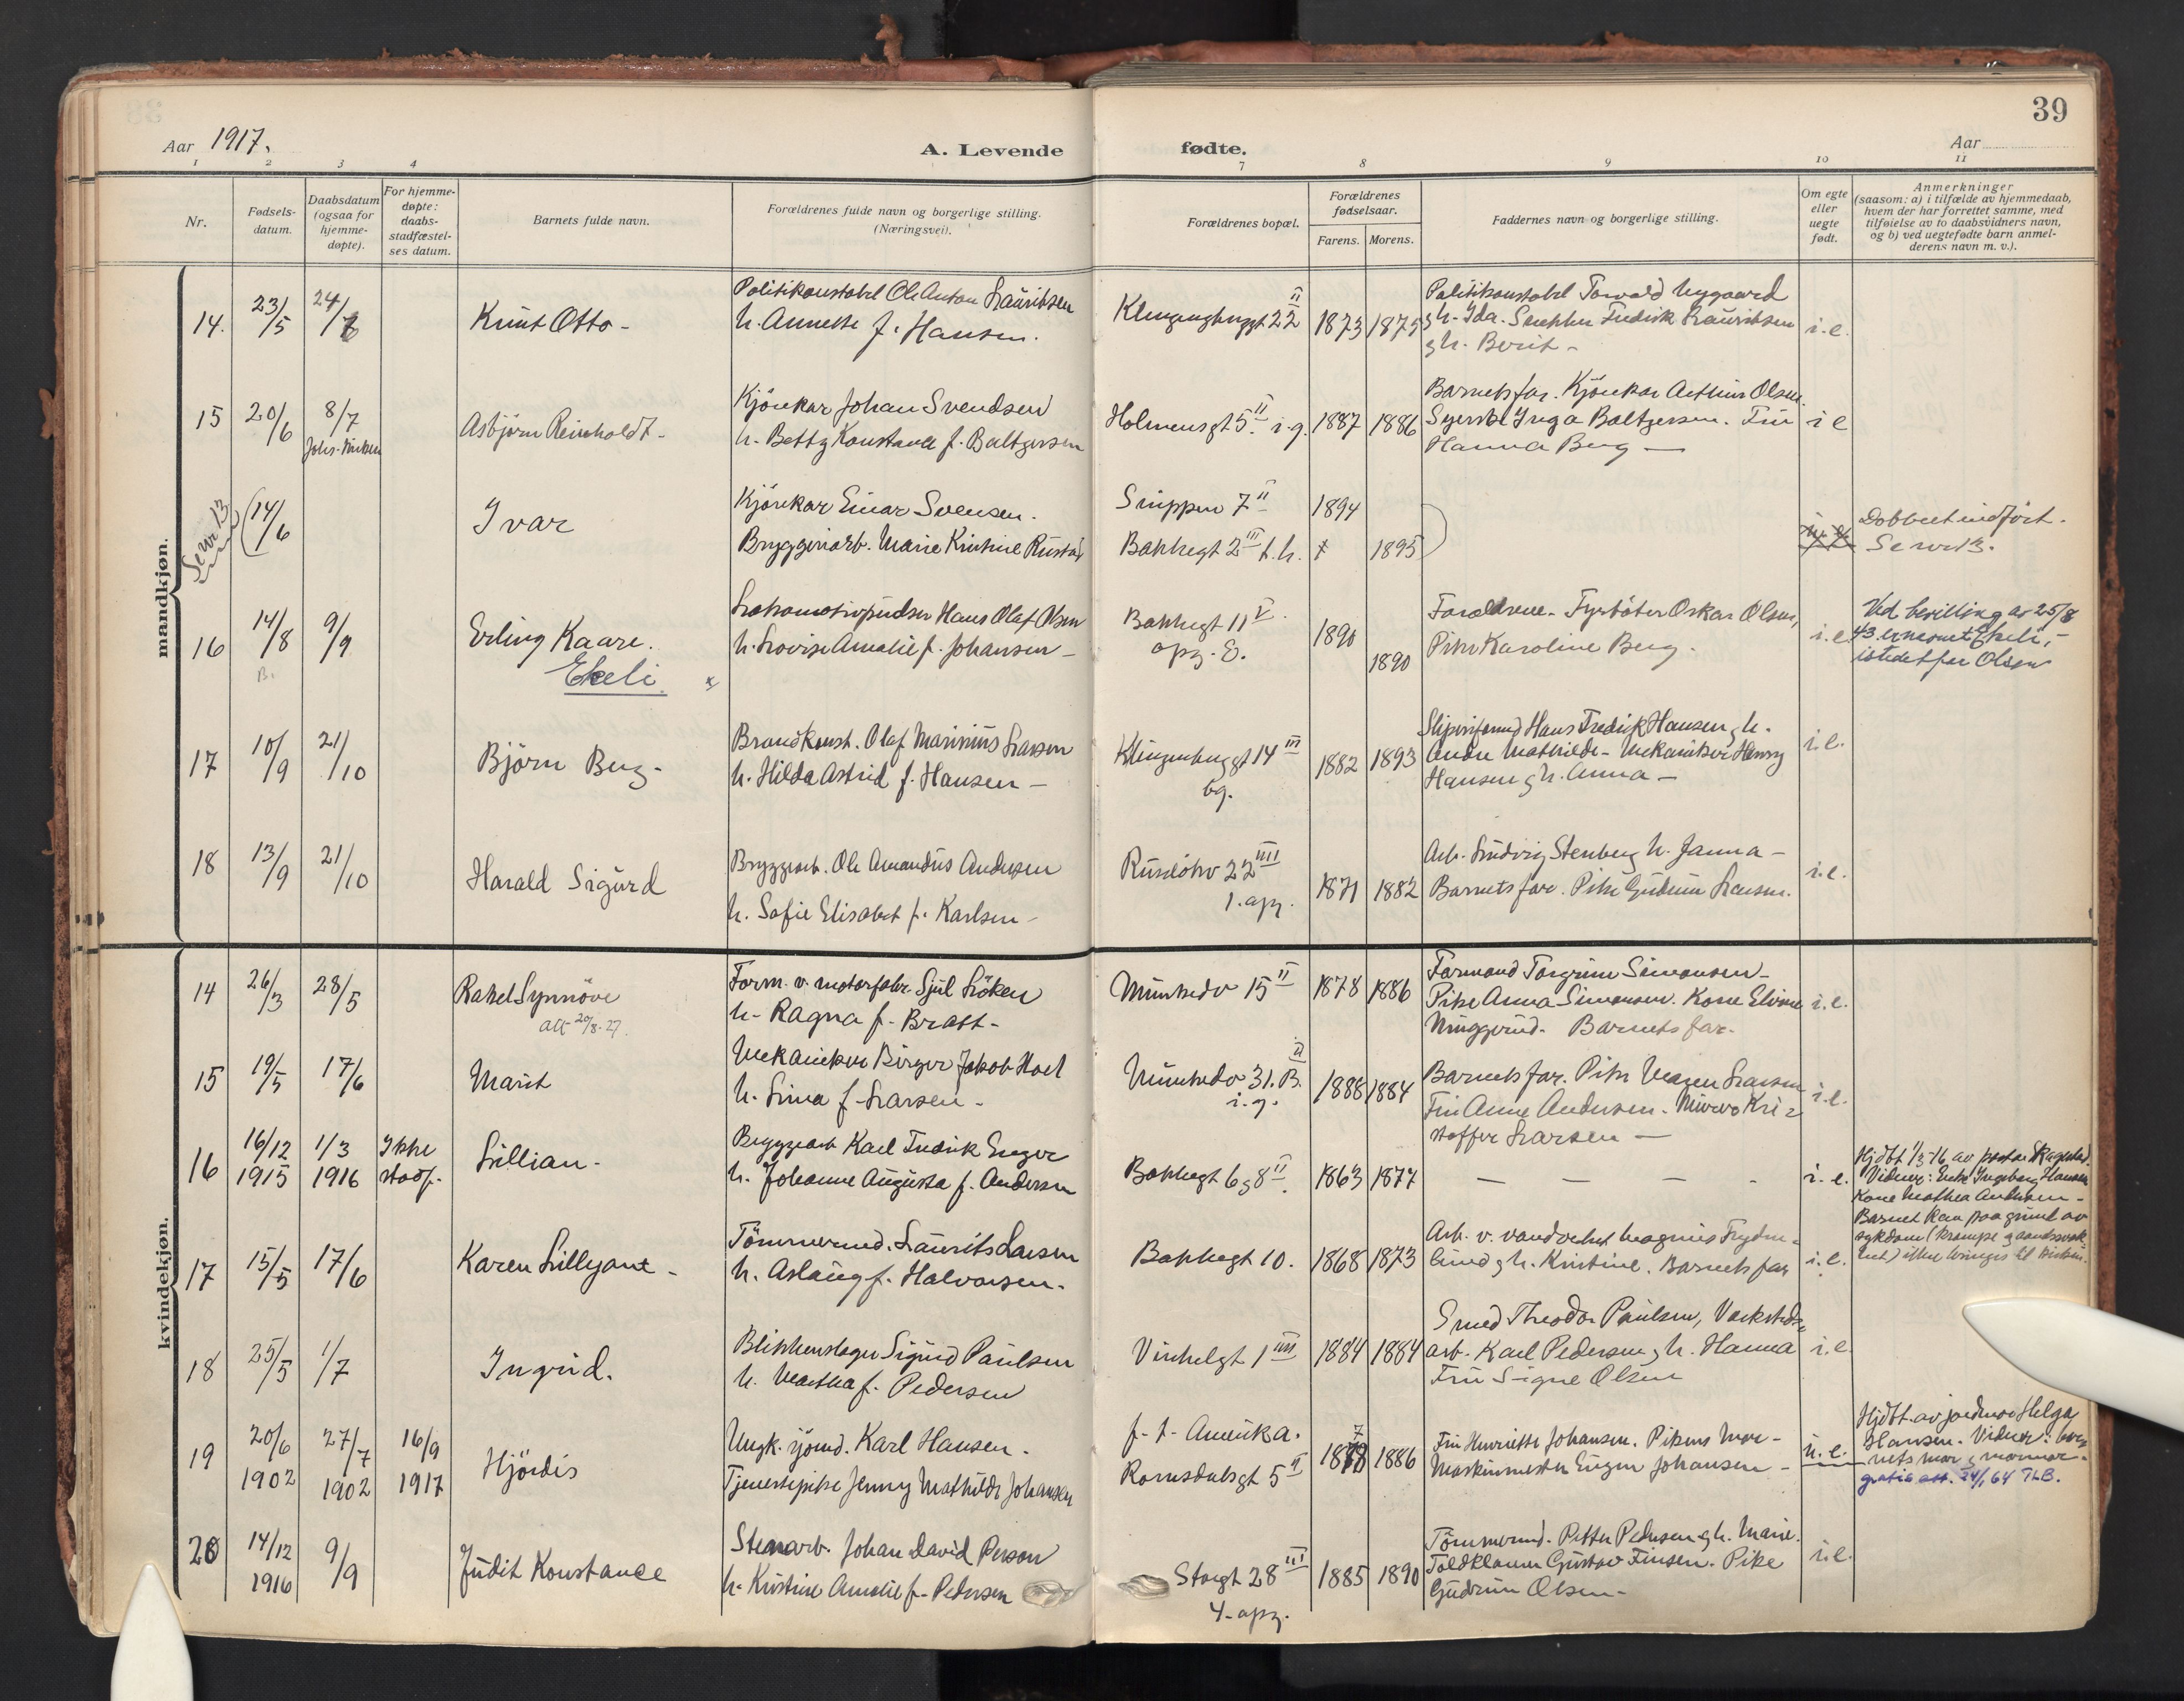 39
Aar 1917.
A. Levende
fødte.
Aar
1 2 3 4
7 8 9 10 11
Nr.
Fødsels-
datum.
Daabsdatum
(ogsaa for
hjemme-
døpte).
For hjemme-
døpte:
daabs-
stadfæstel-
ses datum.
Barnets fulde navn.
Forældrenes fulde navn og borgerlige stilling.
(Næringsvei).
Forældrenes bopæl.
Forældrenes
fødselsaar.
Farens. Morens.
Faddernes navn og borgerlige stilling.
Om egte
eller
uegte
født.
Anmerkninger
(saasom: a) i tilfælde av hjemmedaab,
hvem der har forrettet samme, med
tilføielse av to daabsvidners navn,
og b) ved uegtefødte barn anmel-
derens navn m. v.).
mandkjøn.
14. 23/5 24/6
Knut Otto -
Politikonstabel Ole Anton Lauritsen
h. Annette f. Hansen.
22 II
1873 1875
Politikonstabel Torvald Nygaard
og h. Ida. Snekker Fredrik Lauritsen
og h. Berit -
i. e.
15 20/6 8/7
Asbjørn Reinholdt -
Kjørekar Johan Svendsen
h. Betty Konstance f. Baltzersen
Holmensgt 5 II i. g.
1887 1886
Barnets far. Kjørekar Arthur Olsen.
Syerske Inga Baltzersen. Fru
Hanna Berg —
i e
Se nr 13
(14/6
Ivar
Kjørekar Einar Svensen.
Bryggeriarb. Marie Kristine Rustad
Snippen 7 II
Bakkegt 2 III t. h.
1894
1895
Dobbelt indført.
Se nr 13.
16 14/8 9/9
B.
Erling Kaare.
Ekeli x
Lokomotivpudser Hans Olaf Olsen
h. Lovise Amalie f. Johansen -
Bakkegt 11 V
opg. 8.
1890
1890
Forældrene. Fyrbøter Oskar Olsen,
Pike Karoline Berg.
i. e
Ved bevilling av 25/8
43 er navnet Ekeli,
istedetfor Olsen
17 10/9 21/10
Bjørn Berg -
Brandkonst. Olaf Marinius Larsen
h. Hilda Astrid f. Hansen -
Klingenberggt 14 III
bg.
1882 1893
Hans Fredrik Hansen og h.
Mathilde - Mekaniker Henry
Hansen og h. Anna -
i. e.
18 13/9 21/10
Harald Sigurd
Bryggearb. Ole Amandus Andersen
h. Sofie Elisabet f. Karlsen -
Rusløkv 22 IIII
1. opg.
1871 1882
Arb. Ludvig Stenberg h. Janna -
Barnets far. Pike Gudrun Larsen.
i. e.
kvindekjøn.
14 26/3 28/5
Rakel Synnöve
att 20/8-27.
Form. v. motorfabr. Sjul Löken
h. Ragna f. Bratt -
Munkedv 15 II
1878 1886
Formand Torgrim Simonsen -
Pike Anna Simonsen. Kone Elvine
Muggerud. Barnets far.
i. e.
15 19/5 17/6
Marit
Mekaniker Birger Jakob Hoel
h. Lina f. Larsen -
Munkedv 31. B. II
i. g.
1888 1884
Barnets far. Pike Magen Larsen
Fru Anne Andersen. Murer Kri-
stoffer Larsen —
i. e.
16 16/12 1915 1/3 1916 Ikke
stadf.
Lillian -
Bryggearb Karl Fredrik Enger
h. Johanne Augusta f. Andersen
Bakkegt 6 og 8 II
1863 1877
— — — -
i. e.
Hjdbt 1/3 16 av pastor
Vidner: Enke Ingeborg Hansen
Kone Mathea Andersen -
Barnet kan paa grund av
sykdom (krampe og aandssvak-
het) ikke bringes til kirken.
17 15/5 17/6
Karen Lillyant -
Tömmermd. Laurits Larsen
h. Aslaug f. Halvorsen.
Bakkegt 10.
1868 1873
Arb. v. vandverket Magnus Fryden-
lund og h. Kristine. Barnets far
i. e.
18 25/5 1/7
Ingrid.
Blikkenslager Sigurd Paulsen
h. Martha f. Pedersen
Vinkelgt 1 IIII
1884 1884
Smed Theodor Paulsen, Verksteds-
arb. Karl Pedersen og h. Hanna
Fru Signe Olsen
i. e.
19 20/6 1902 27/7 1902 16/9 1917
Hjördis
Ungk. sjömd. Karl Hansen.
Tjenestepike Jenny Mathilde Johansen
f. t. Amerika.
Romsdalsgt 5 II
1878 1886
Fru Henriette Johansen. Pikens mor -
Maskinmester Eugen Johansen -
u. e.
Hjdbt. av jordmor Helga
Hansen. Vidner: bar-
nets mor og mormor.
gratis att. 24/1 64 ThB.
20 14/12 1916 9/9
Judit Konstance
Stenarb. Johan David Person
h. Kristine Amalie f. Pedersen
Storgt 28 III
4. opg.
1885 1890
Tömmermd. Petter Pedersen og h. Marie.
Gustav Finsen. Pike
Gudrun Olsen -
i. e.